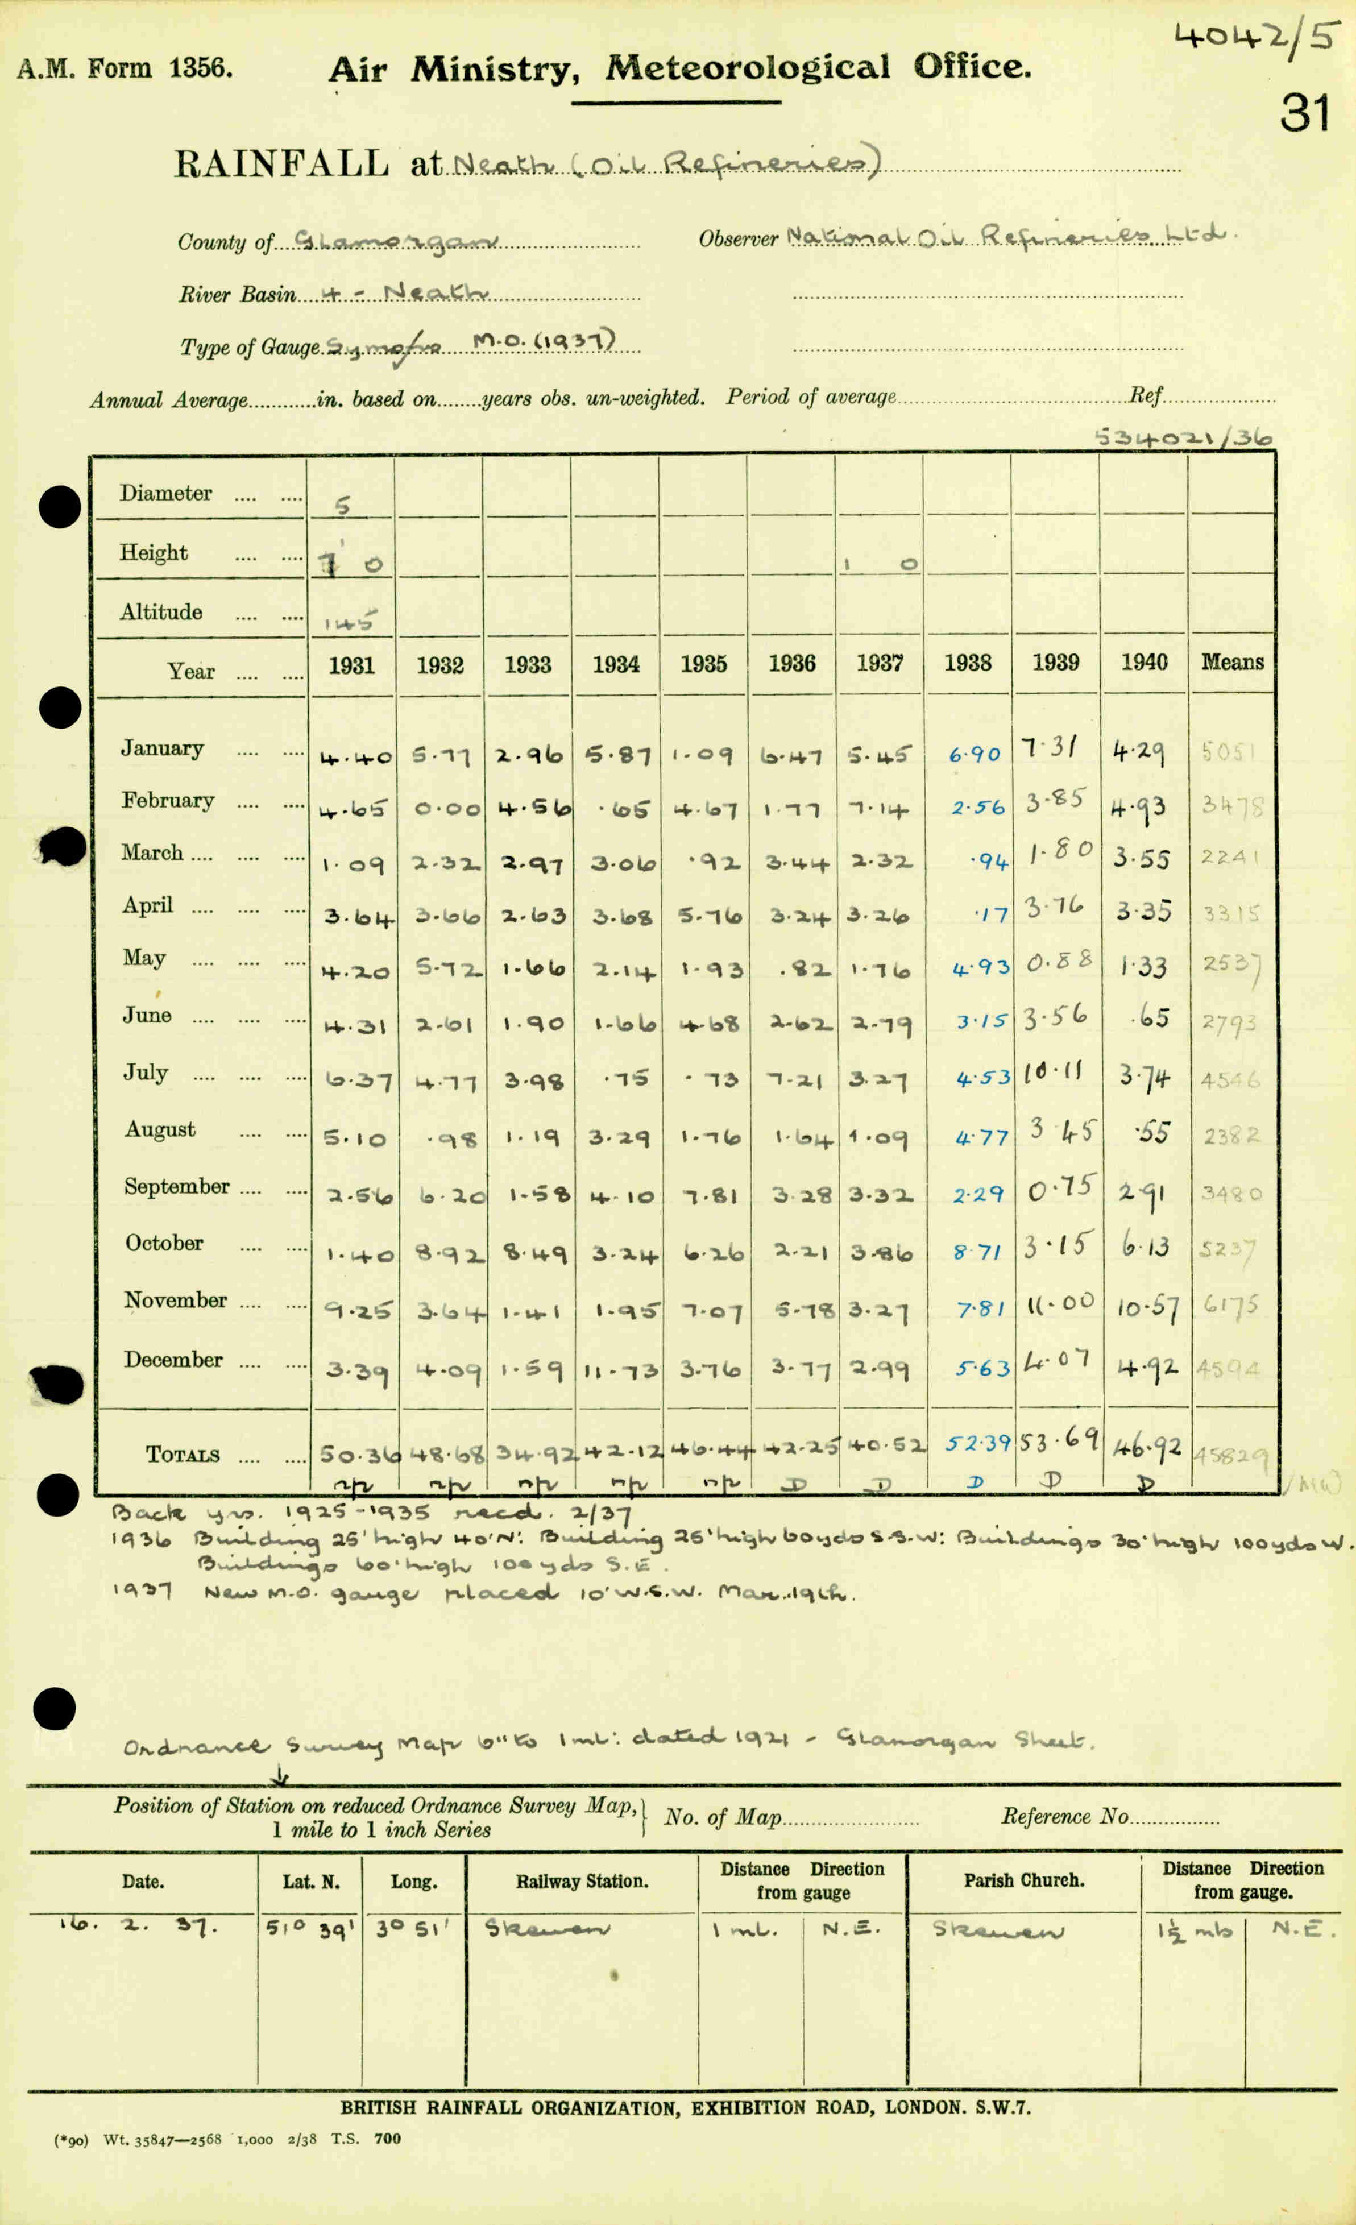 4042/5
A.M. Form 1356. Air Ministry, Meteorological Office.
31
RAINFALL at Neath (Oil Refineries)
County of Glamorgan Observer National Oil Refineries Ltd.
River Basin 4 - Neath
Type of Gauge Symons M.O. (1937)
Annual Average............in. based on........years obs. un-weighted. Period of average.............................Ref....................
534021/36
Diameter .... .... 5
Height .... .... 1' 0 1 0
Altitude .... .... 145
Year .... .... 1931 1932 1933 1934 1935 1936 1937 1938 1939 1940 Means
January .... .... 4.40 5.77 2.96 5.87 1.09 6.47 5.45 6.90 7.31 4.29 5051
February .... .... 4.65 0.00 4.56 .65 4.67 1.77 7.14 2.56 3.85 4.93 3478
March .... .... .... 1.09 2.32 2.97 3.06 .92 3.44 2.32 .94 1.80 3.55 2241
April .... .... .... 3.64 3.66 2.63 3.68 5.76 3.24 3.26 .17 3.76 3.35 3315
May .... .... .... 4.20 5.72 1.66 2.14 1.93 .82 1.76 4.93 0.88 1.33 2537
June .... .... .... 4.31 2.61 1.90 1.66 4.68 2.62 2.79 3.15 3.56 .65 2793
July .... .... .... 6.37 4.77 3.98 .75 .73 7.21 3.27 4.53 10.11 3.74 4546
August .... .... 5.10 .98 1.19 3.29 1.76 1.64 1.09 4.77 3.45 .55 2382
September .... .... 2.56 6.20 1.58 4.10 7.81 3.28 3.32 2.29 0.75 2.91 3480
October .... .... 1.40 8.92 8.49 3.24 6.26 2.21 3.86 8.71 3.15 6.13 5237
November .... .... 9.25 3.64 1.41 1.95 7.07 5.78 3.27 7.81 11.00 10.57 6175
December .... .... 3.39 4.09 1.59 11.73 3.76 3.77 2.99 5.63 4.07 4.92 4594
TOTALS .... .... 50.36 48.68 34.92 42.12 46.44 42.25 40.52 52.39 53.69 46.92 45829
np np np np np D D D D D
Back yrs. 1925-1935 recd. 2/37
1936 Building 25' high 40'N: Building 25' high 60yds S.S.W: Buildings 30' high 100yds W.
Buildings 60' high 100yds S.E.
1937 New M.O. gauge placed 10' W.S.W. Mar. 19th.
Ordnance Survey Map 6" to 1ml: dated 1921 - Glamorgan Sheet.
Position of Station on reduced Ordnance Survey Map, 1 mile to 1 inch Series No. of Map........................ Reference No................
Date. Lat. N. Long. Railway Station. Distance Direction from gauge Parish Church. Distance Direction from gauge.
16. 2. 37. 51° 39' 3° 51' Skewen 1 ml. N.E. Skewen 1½ mls N.E.
BRITISH RAINFALL ORGANIZATION, EXHIBITION ROAD, LONDON. S.W.7.
(*90) Wt. 35847—2568 1,000 2/38 T.S. 700